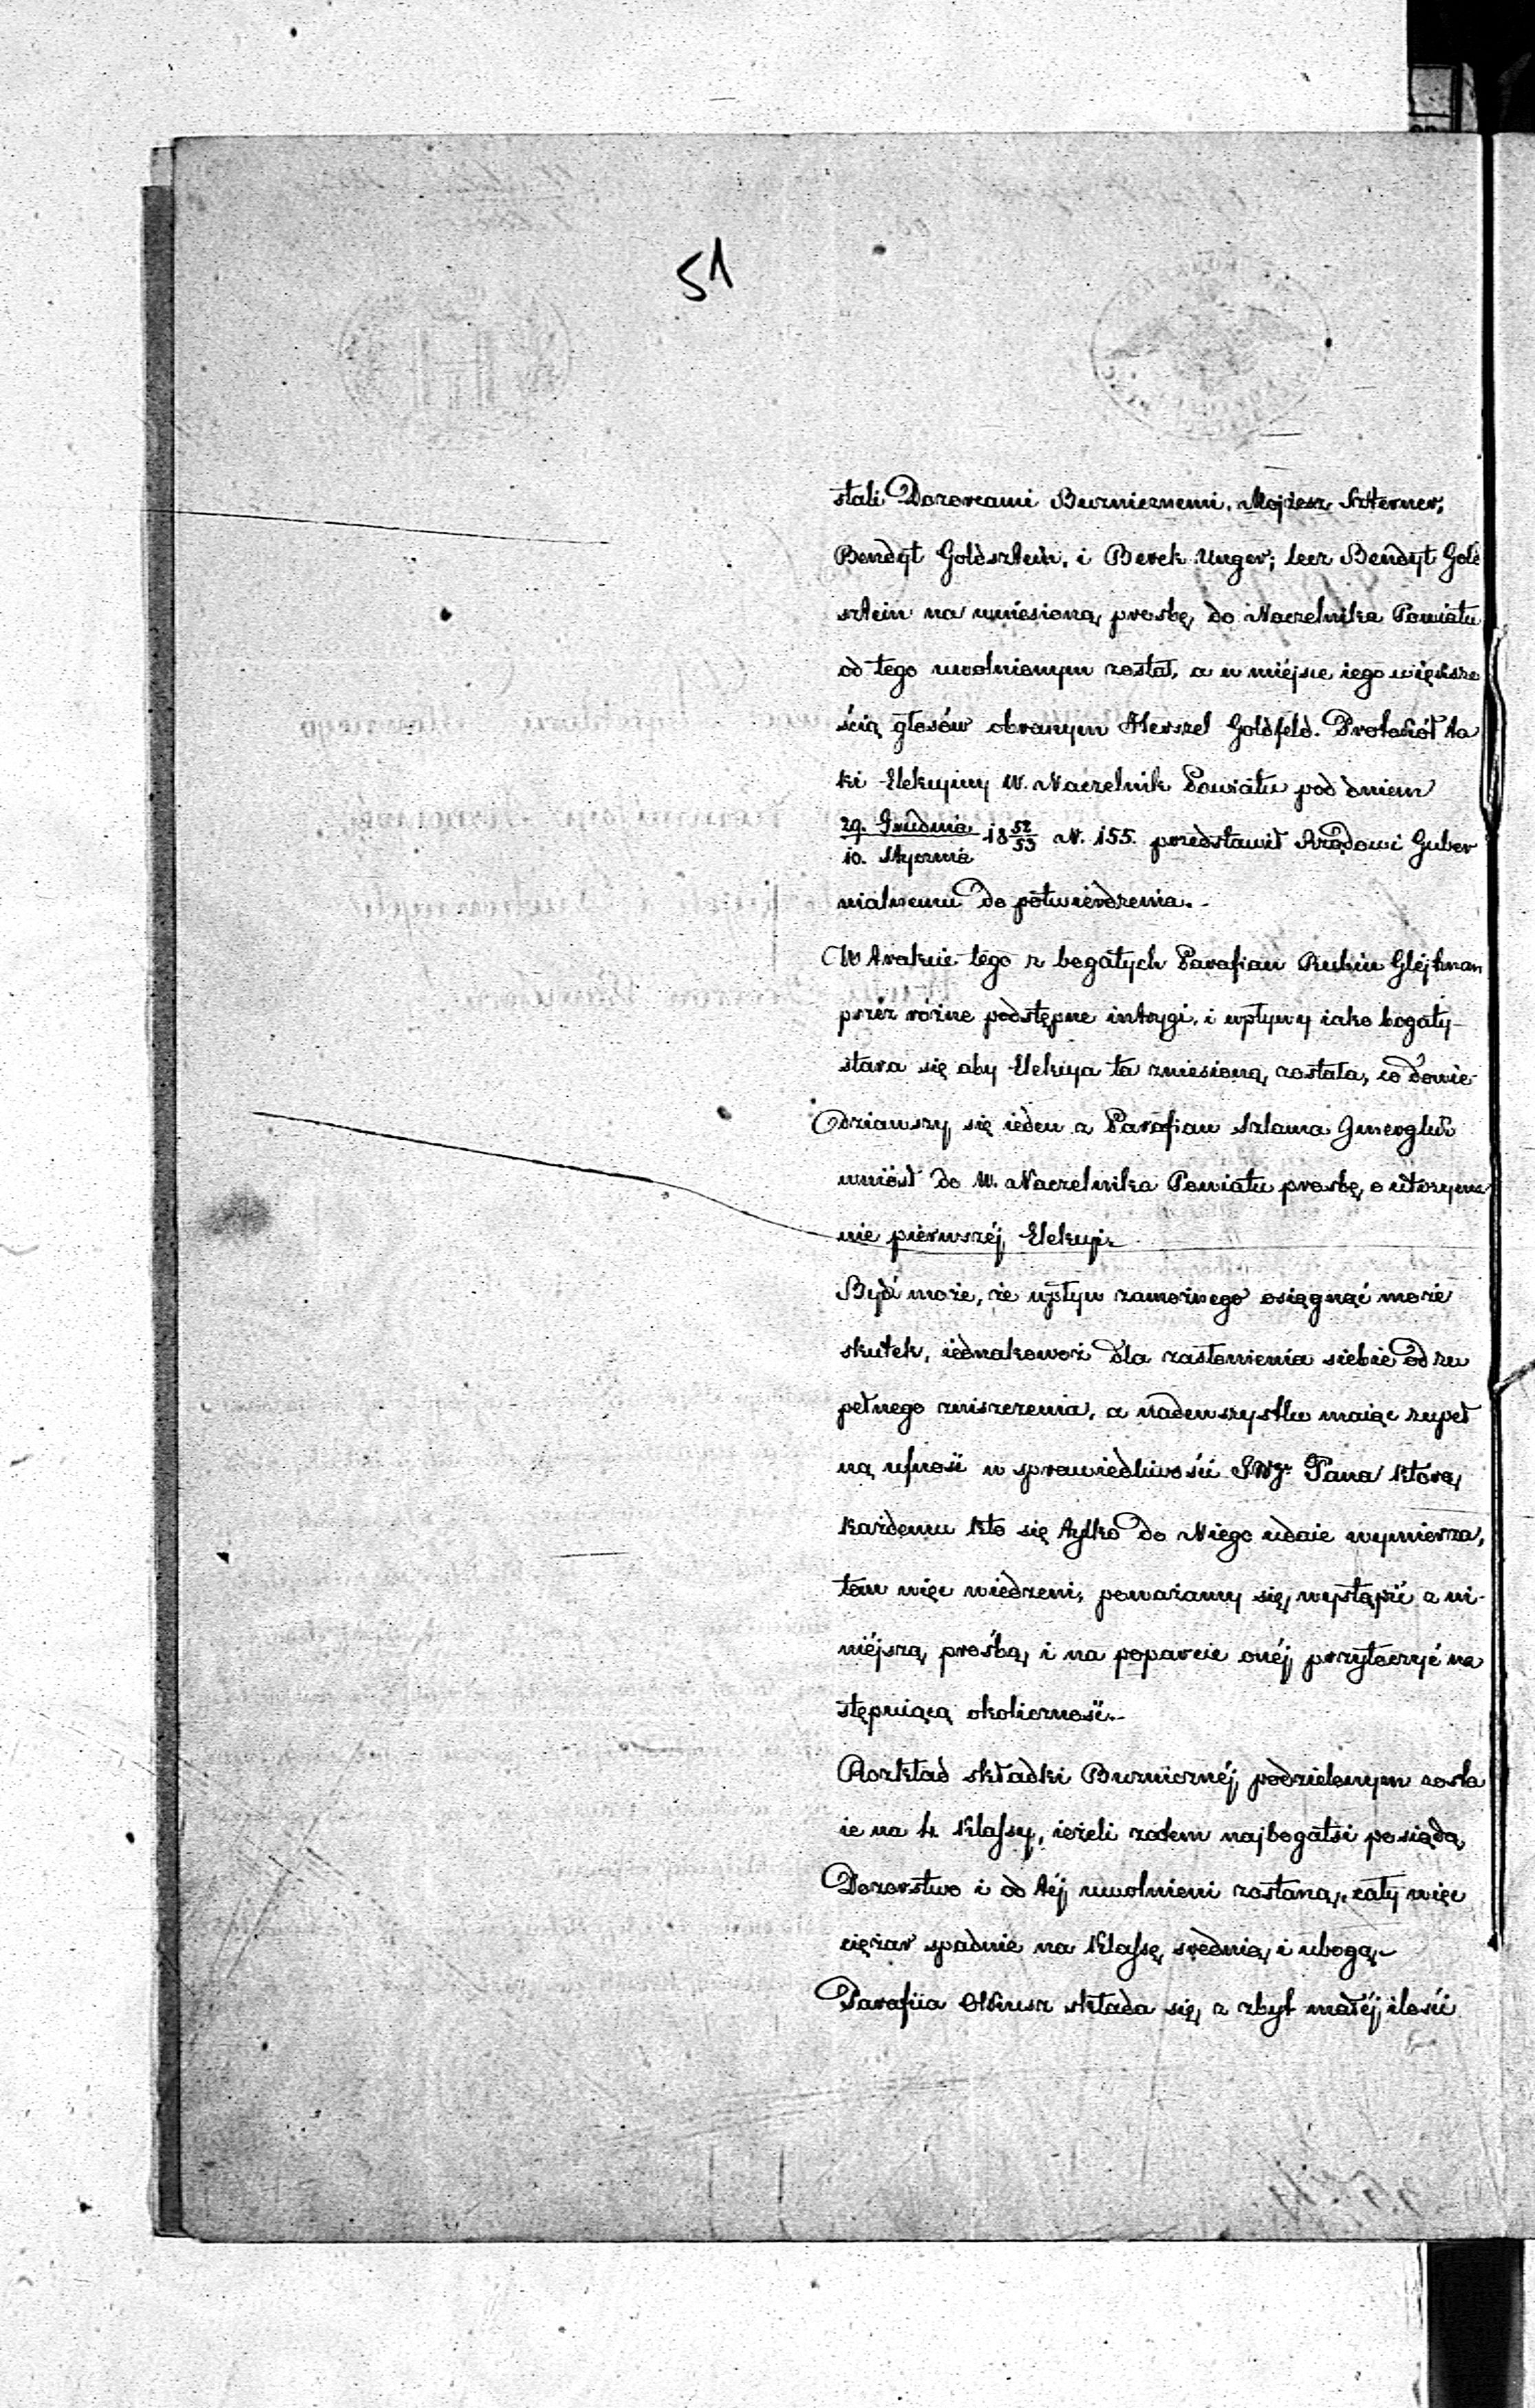 51
stali Dozorcami Burnicznemi, Mojżesz Szterner,
Bendyt Goldsztein, i Berek Unger; lecz Bendyt Gold
sztein na wniesioną prosbę do Naczelnika Powiatu
od tego uwolnionym został, a w miéjsce iego większo
ścią głosów obranym Herszel Goldfeld. Protokół ta
ki Elekcyiny W. Naczelnik Powiatu pod dniem
29. Grudnia / 10. Stycznia 18 52/53 N. 155. przedstawił Rządowi Guber
nialnemu do potwierdzenia.-
W trakcie tego z bogatych Parafian Rubin Glejtman
przez różne podstępne intrygi, i wpływy iako bogaty-
stara się aby Elekcya ta zniesioną została, co dowie-
dziawszy się ieden z Parafian Szlama Gmerglik
wniósł do W. Naczelnika Powiatu prosbę o utrzyma
nie pierwszéj Elekcyi.
Bydź może, że wpływ zamożnego osiągnąć może
skutek, iednakowoż dla zasłonienia siebie od zu
pełnego zniszczenia, a nadewszystko maiąc zupeł
ną ufność w sprawiedliwości JWgo Pana którą
każdemu kto się tylko do Niego udaie wymierza,
tem więc wiedzeni, poważamy się wystąpić z ni-
niéjszą prośbą i na poparcie onéj przytoczyć na
stępuiącą okoliczność.-
Rozkład składki Burnicznéj podzielonym zosta
ie na 4. Klassy, ieżeli zatem najbogatsi posiędą
Dozorstwo i od téj uwolnieni zostaną, cały więc
ciężar spadnie na Klassę srednią i ubogą.-
Parafiia Olkusz składa się z zbyt małéj ilości